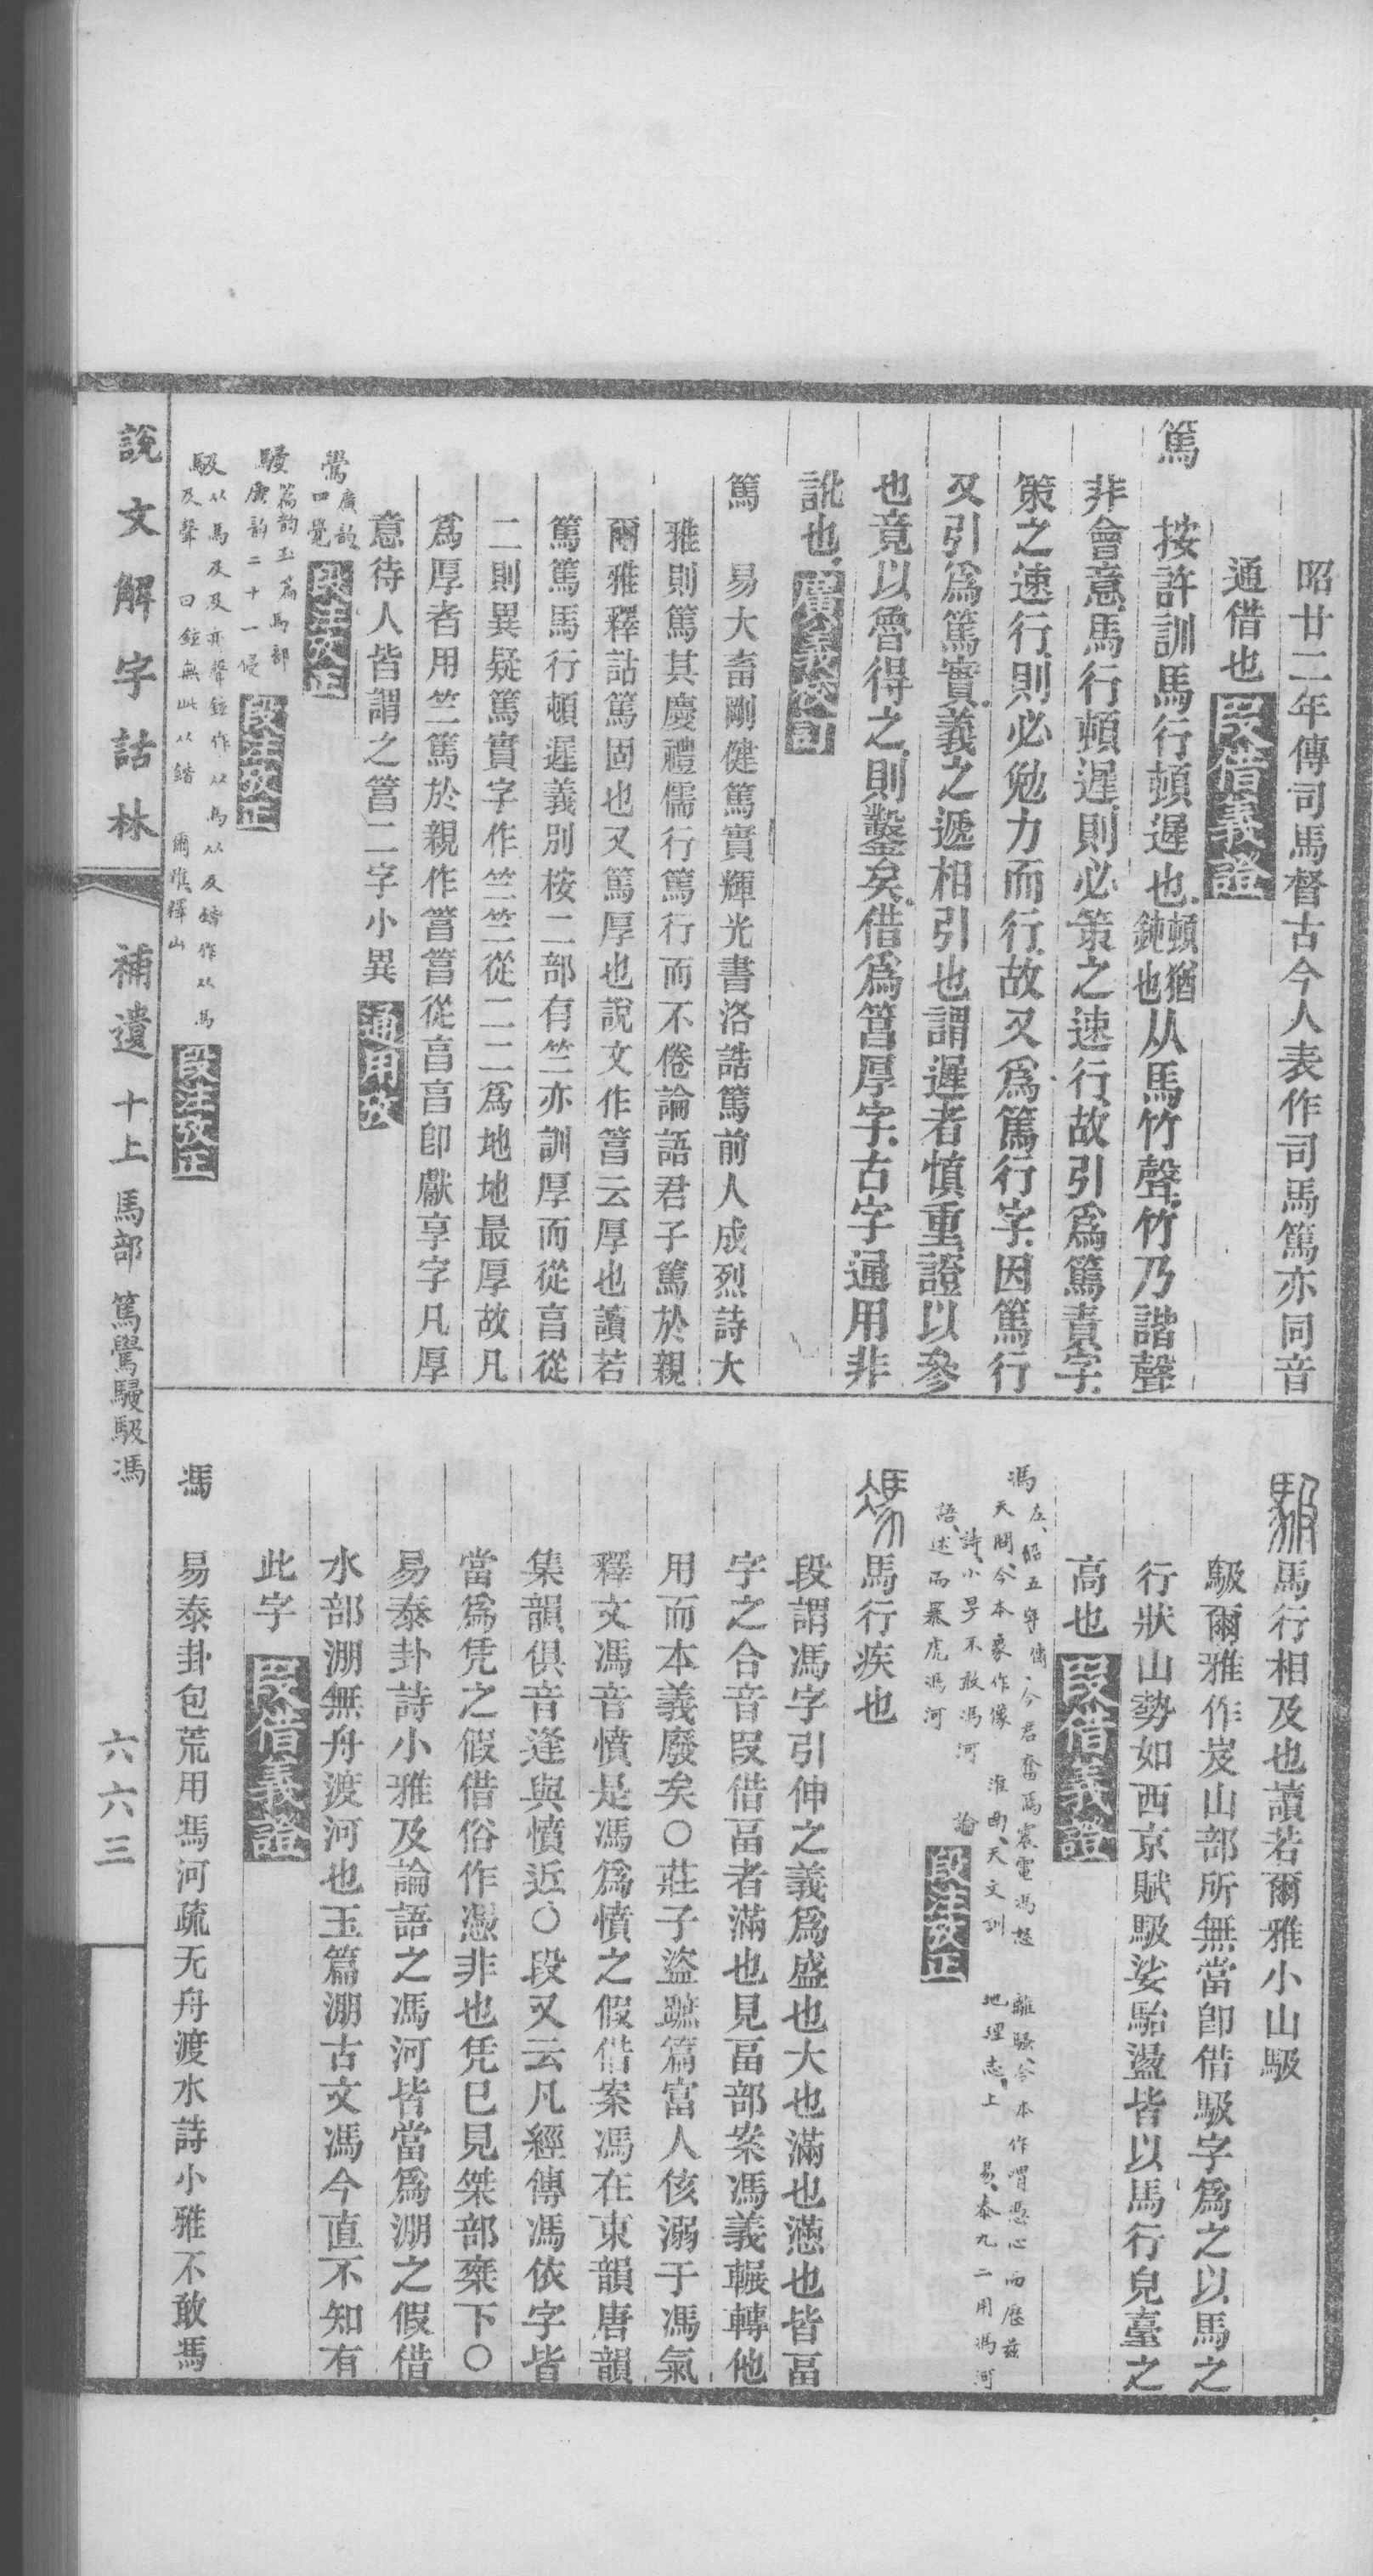 昭廿二年傳司馬督古今人表作司馬篤亦同音
通借也 叚借義證
篤 按許訓馬行頓遲也頓猶鈍也从馬竹聲竹乃諧聲
非會意馬行頓遲則必策之速行故引爲篤責字
策之速行則必勉力而行故又爲篤行字因篤行
又引爲篤實義之遞相引也謂遲者慎重證以參
也竟以魯得之則鑿矣借爲筥厚字古字通用非
訛也 廣義校訂
篤 易大畜剛健篤實輝光書洛誥篤前人成烈詩大
雅則篤其慶禮儒行篤行而不倦論語君子篤於親
爾雅釋詁篤固也又篤厚也說文作䈞云厚也讀若
篤篤馬行頓遲義別按二部有竺亦訓厚而從亯從
二則異疑篤實字作竺竺從二二爲地地最厚故凡
爲厚者用竺篤於親作䈞䈞從亯亯卽獻享字凡厚
意待人皆謂之䈞二字小異 通用攷
鷽 廣韵四覺 段注攷正
騴 篇韵玉篇馬部唐韵二十一侵 段注攷正
馺 从馬及及亦聲鉉作从馬从及鍇作从馬及聲 曰鉉無此从鍇 爾雅釋山 段注攷正
馺 馬行相及也讀若爾雅小山馺
馺爾雅作岌山部所無當卽借馺字爲之以馬之
行狀山勢如西京賦馺娑駘盪皆以馬行皃臺之
高也 叚借義證
馮 左、昭五年傳、今君奮焉震電馮怒 離騷今本作喟憑心而歷茲
天問今本象作像 淮南、天文訓 地理志上 易、泰九二用馮河
詩、小旻不敢馮河 論語、述而暴虎馮河 段注攷正
馮 馬行疾也
段謂馮字引伸之義爲盛也大也滿也懣也皆畐
字之合音叚借畐者滿也見畐部案馮義輾轉他
用而本義廢矣○莊子盜蹠篇富人侅溺于馮氣
釋文馮音憤是馮爲憤之假借案馮在東韻唐韻
集韻俱音逢與憤近○段又云凡經傳馮依字皆
當爲凭之假借俗作憑非也凭已見桀部椉下○
易泰卦詩小雅及論語之馮河皆當爲淜之假借
水部淜無舟渡河也玉篇淜古文馮今直不知有
此字 叚借義證
馮 易泰卦包荒用馮河疏无舟渡水詩小雅不敢馮
說文解字詁林 補遺 十上 馬部 篤鷽騴馺馮 六六三